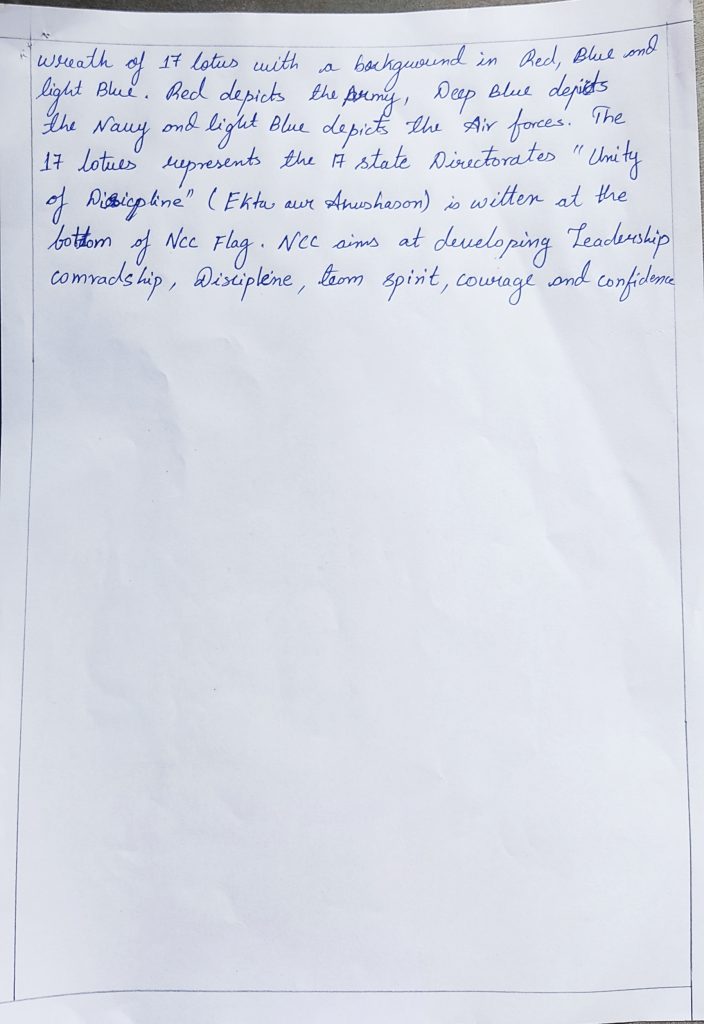 wreath of 17 lotus with a background in Red, Blue and
light Blue. Red depicts the Army, Deep Blue depicts
the Navy and light Blue depicts the Air forces. The
17 lotues represents the 17 state Directorates "Unity
of Disicpline" (Ekta aur Anushason) is witten at the
bottom of Ncc Flag. NCC aims at developing Leadership
comradship, Discipline, team spirit, courage and confidence